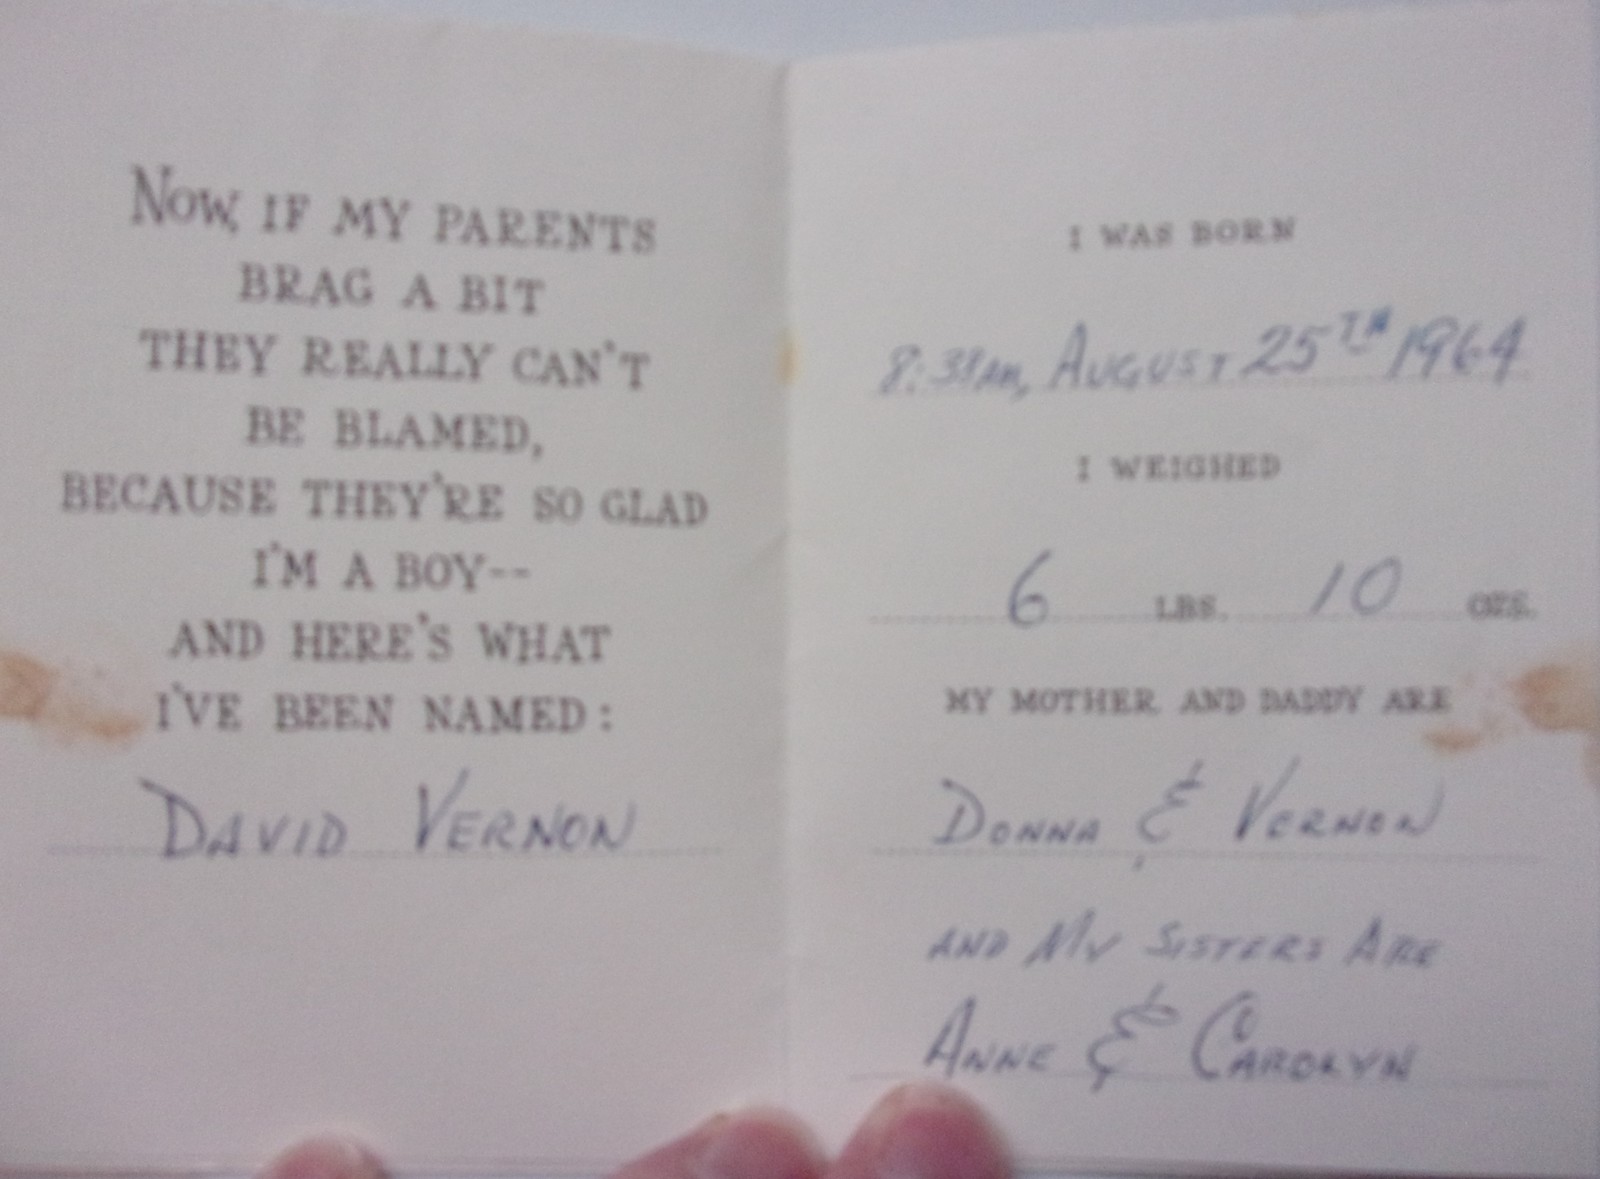 Now, IF MY PARENTS
BRAG A BIT
THEY REALLY CAN'T
BE BLAMED,
BECAUSE THEY'RE SO GLAD
I'M A BOY--
AND HERE'S WHAT
I'VE BEEN NAMED:
DAVID VERNON
I WAS BORN
8:38AM, AUGUST 25TH 1964
I WEIGHED
6 LBS. 10 OZS.
MY MOTHER AND DADDY ARE
DONNA & VERNON
AND MY SISTERS ARE
ANNE & CAROLYN